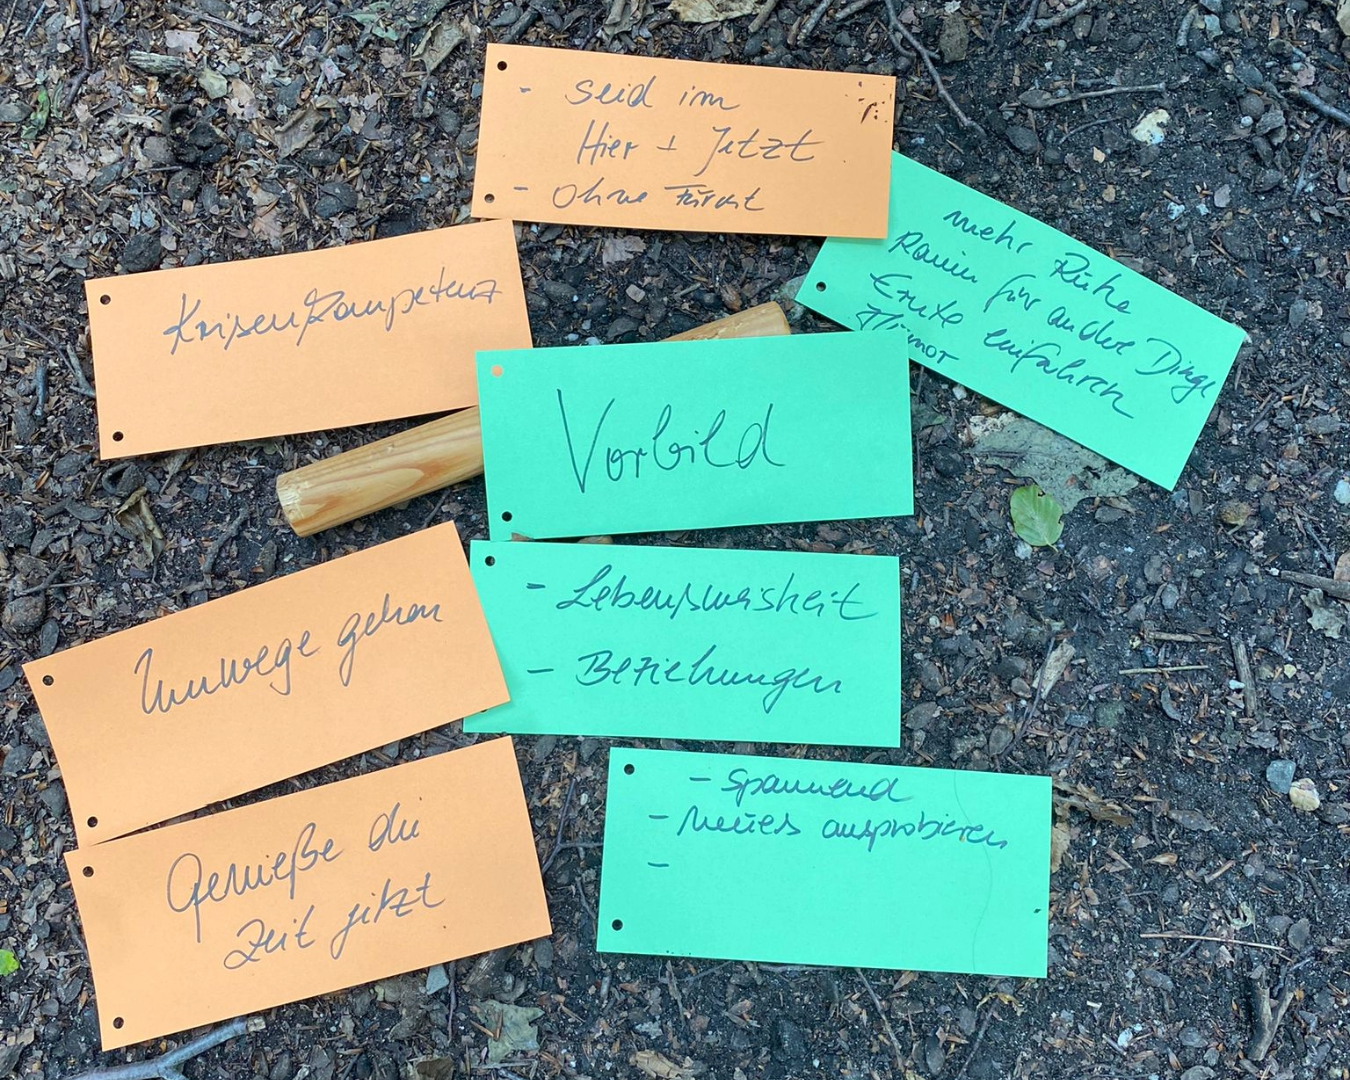 - seid im
Hier + Jetzt
- ohne Furcht
mehr Ruhe
Raum für andere Dinge
Ernte einfahren
Humor
Krisenkompetenz
Vorbild
Umwege gehen
- Lebensweisheit
- Beziehungen
Genieße die
Zeit jetzt
- spannend
- Neues ausprobieren
-